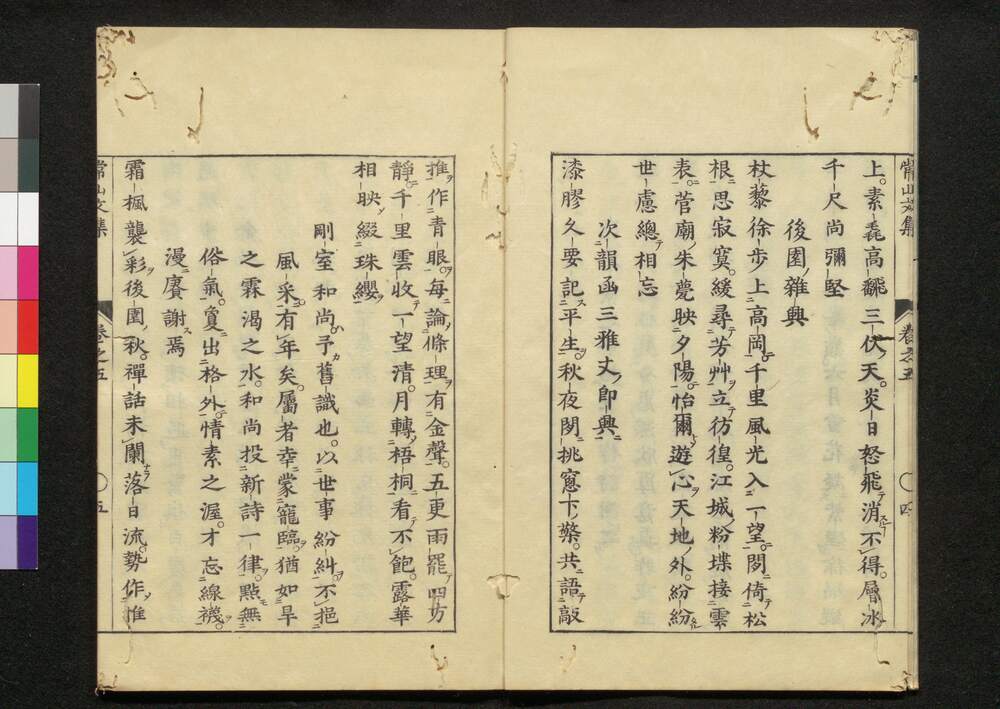 常山文集
卷之五
四
上素毳高飜三伏天炎日怒飛消不得層冰
千尺尚彌堅
後園雜興
杖藜徐步上高岡千里風光入一望閑倚松
根思寂寞緩尋芳艸立彷徨江城粉堞接雲
表菅廟朱甍映夕陽怡爾遊心天地外紛紛
世慮總相忘
次韻函三雅丈卽興
漆膠久要記平生秋夜閑挑窓下檠共語敲
推作青眼每論條理有金聲五更雨罷四方
靜千里雲收一望清月轉梧桐看不飽露華
相映綴珠纓
剛室和尚予舊識也以世事紛糾不挹
風采有年矣屬者幸蒙寵臨猶如旱
之霖渴之水和尚投新詩一律點無
俗氣夐出格外情素之渥才忘線襪
漫賡謝焉
霜楓襲彩後園秋禪話未闌落日流勢作惟
常山文集
卷之五
五